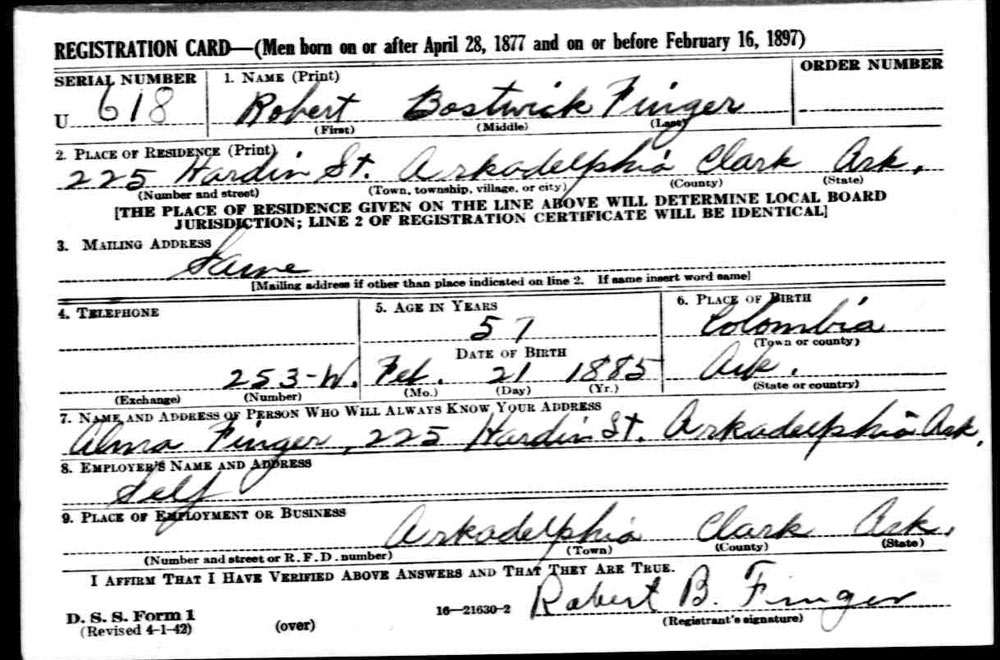 REGISTRATION CARD—(Men born on or after April 28, 1877 and on or before February 16, 1897)
SERIAL NUMBER 1. NAME (Print) ORDER NUMBER
U 618 Robert Bostwick Finger
(First) (Middle) (Last)
2. PLACE OF RESIDENCE (Print)
225 Hardin St. Arkadelphia Clark Ark.
(Number and street) (Town, township, village, or city) (County) (State)
[THE PLACE OF RESIDENCE GIVEN ON THE LINE ABOVE WILL DETERMINE LOCAL BOARD
JURISDICTION; LINE 2 OF REGISTRATION CERTIFICATE WILL BE IDENTICAL]
3. MAILING ADDRESS
Same
[Mailing address if other than place indicated on line 2. If same insert word same]
4. TELEPHONE 5. AGE IN YEARS 6. PLACE OF BIRTH
57 Colombia
DATE OF BIRTH (Town or county)
253-W. Feb. 21 1885 Ark.
(Exchange) (Number) (Mo.) (Day) (Yr.) (State or country)
7. NAME AND ADDRESS OF PERSON WHO WILL ALWAYS KNOW YOUR ADDRESS
Alma Finger, 225 Hardin St. Arkadelphia Ark.
8. EMPLOYER'S NAME AND ADDRESS
Self
9. PLACE OF EMPLOYMENT OR BUSINESS
Arkadelphia Clark Ark.
(Number and street or R. F. D. number) (Town) (County) (State)
I AFFIRM THAT I HAVE VERIFIED ABOVE ANSWERS AND THAT THEY ARE TRUE.
Robert B. Finger
D. S. S. Form 1 16—21630-2 (Registrant's signature)
(Revised 4-1-42) (over)